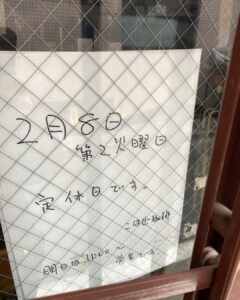 2月8日
第2火曜日
定休日です。
明日は11:00〜
営業します。